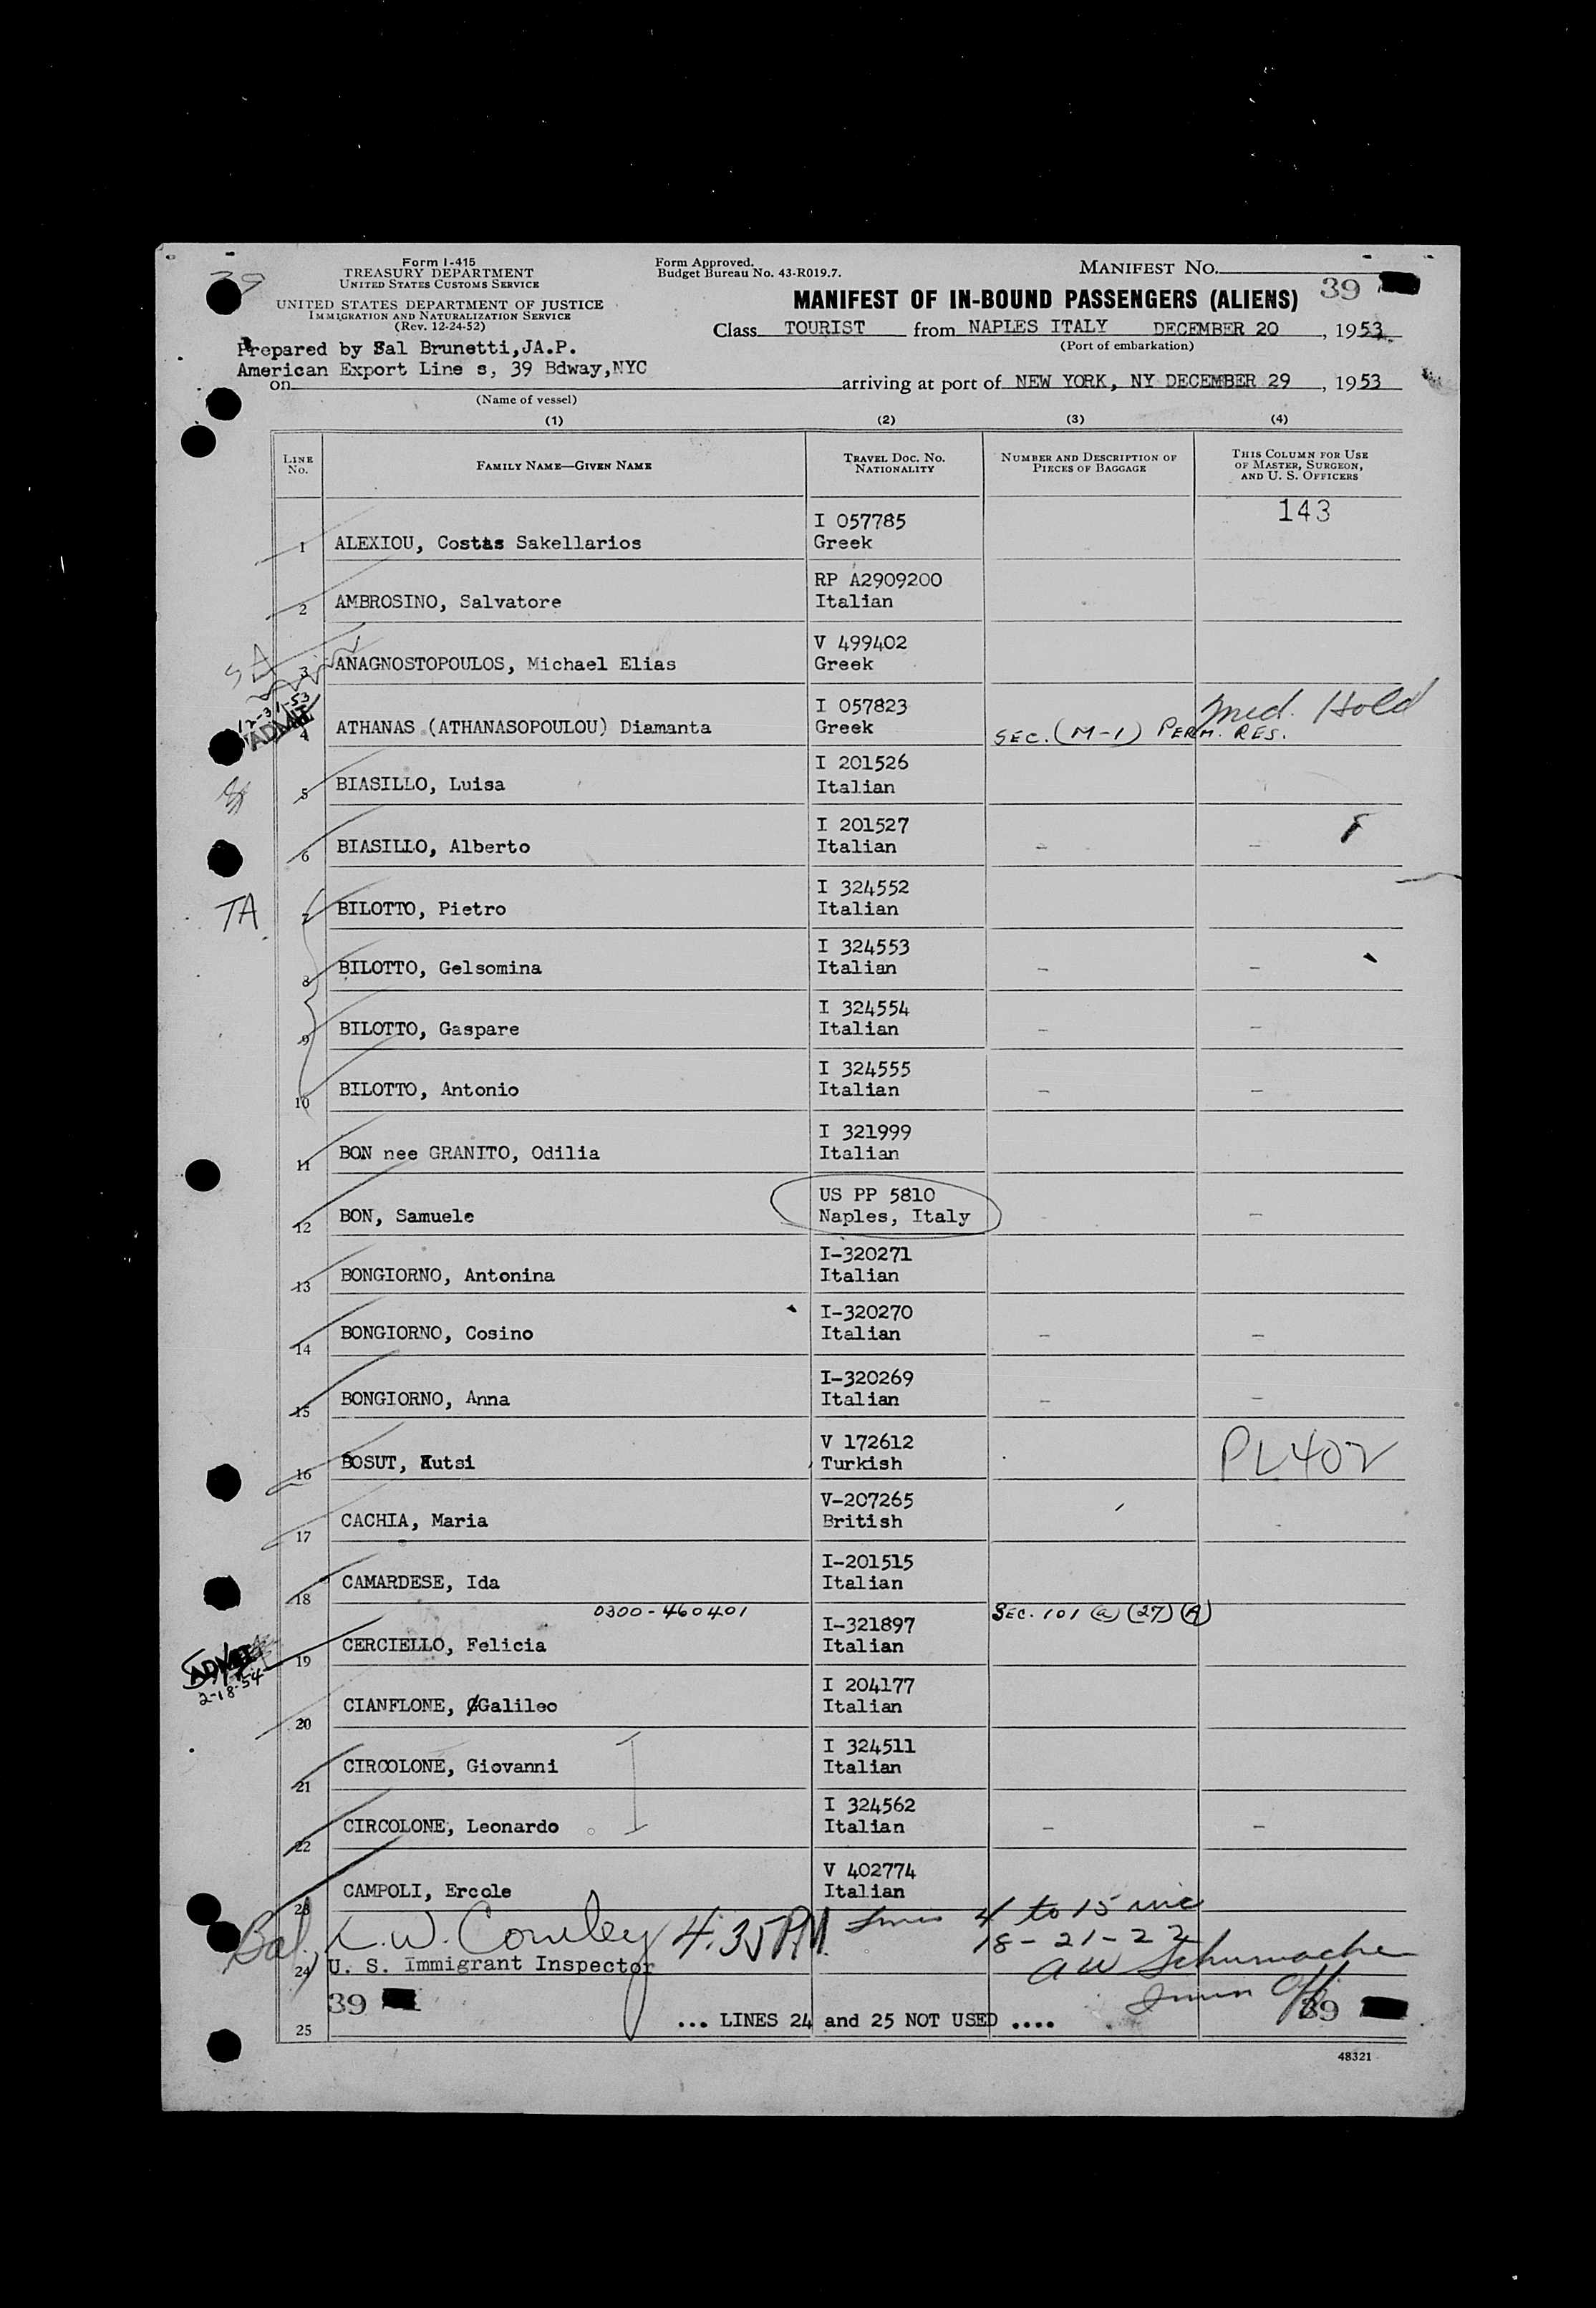 39
Form I-415
TREASURY DEPARTMENT
UNITED STATES CUSTOMS SERVICE
UNITED STATES DEPARTMENT OF JUSTICE
IMMIGRATION AND NATURALIZATION SERVICE
(Rev. 12-24-52)
Form Approved.
Budget Bureau No. 43-R019.7.
MANIFEST NO.
39
MANIFEST OF IN-BOUND PASSENGERS (ALIENS)
Class TOURIST from NAPLES ITALY DECEMBER 20, 1953
(Port of embarkation)
Prepared by Sal Brunetti,JA.P.
American Export Line s, 39 Bdway,NYC
on arriving at port of NEW YORK, NY DECEMBER 29, 1953
(Name of vessel)
(1) (2) (3) (4)
LINE NO. FAMILY NAME—GIVEN NAME TRAVEL DOC. NO. NATIONALITY NUMBER AND DESCRIPTION OF PIECES OF BAGGAGE THIS COLUMN FOR USE OF MASTER, SURGEON, AND U. S. OFFICERS
143
I 057785
1 ALEXIOU, Costas Sakellarios Greek
RP A2909200
2 AMBROSINO, Salvatore Italian
V 499402
SA 3 ANAGNOSTOPOULOS, Michael Elias Greek
12-31-53 I 057823 Med. Hold
ADMIT 4 ATHANAS (ATHANASOPOULOU) Diamanta Greek SEC. (M-1) PERM. RES.
I 201526
5 BIASILLO, Luisa Italian
I 201527
6 BIASILLO, Alberto Italian - -
I 324552
TA 7 BILOTTO, Pietro Italian
I 324553
8 BILOTTO, Gelsomina Italian - -
I 324554
9 BILOTTO, Gaspare Italian - -
I 324555
10 BILOTTO, Antonio Italian - -
I 321999
11 BON nee GRANITO, Odilia Italian
US PP 5810
12 BON, Samuele Naples, Italy -
I-320271
13 BONGIORNO, Antonina Italian
I-320270
14 BONGIORNO, Cosino Italian - -
I-320269
15 BONGIORNO, Anna Italian - -
V 172612 PL 402
16 BOSUT, Kutsi Turkish
V-207265
17 CACHIA, Maria British
I-201515
18 CAMARDESE, Ida Italian
0300-460401 I-321897 SEC. 101 (a) (27) (A)
19 CERCIELLO, Felicia Italian
ADMIT
2-18-54
I 204177
20 CIANFLONE, GGalileo Italian
I 324511
21 CIRCOLONE, Giovanni Italian
I 324562
22 CIRCOLONE, Leonardo Italian - -
V 402774
23 CAMPOLI, Ercole Italian
Bal, L.W. Conley 4:35 PM. Lines 4 to 15 inc
18-21-22
24 U. S. Immigrant Inspector A W Schumacher
Imm Off
39 39
25 ... LINES 24 and 25 NOT USED ....
48321